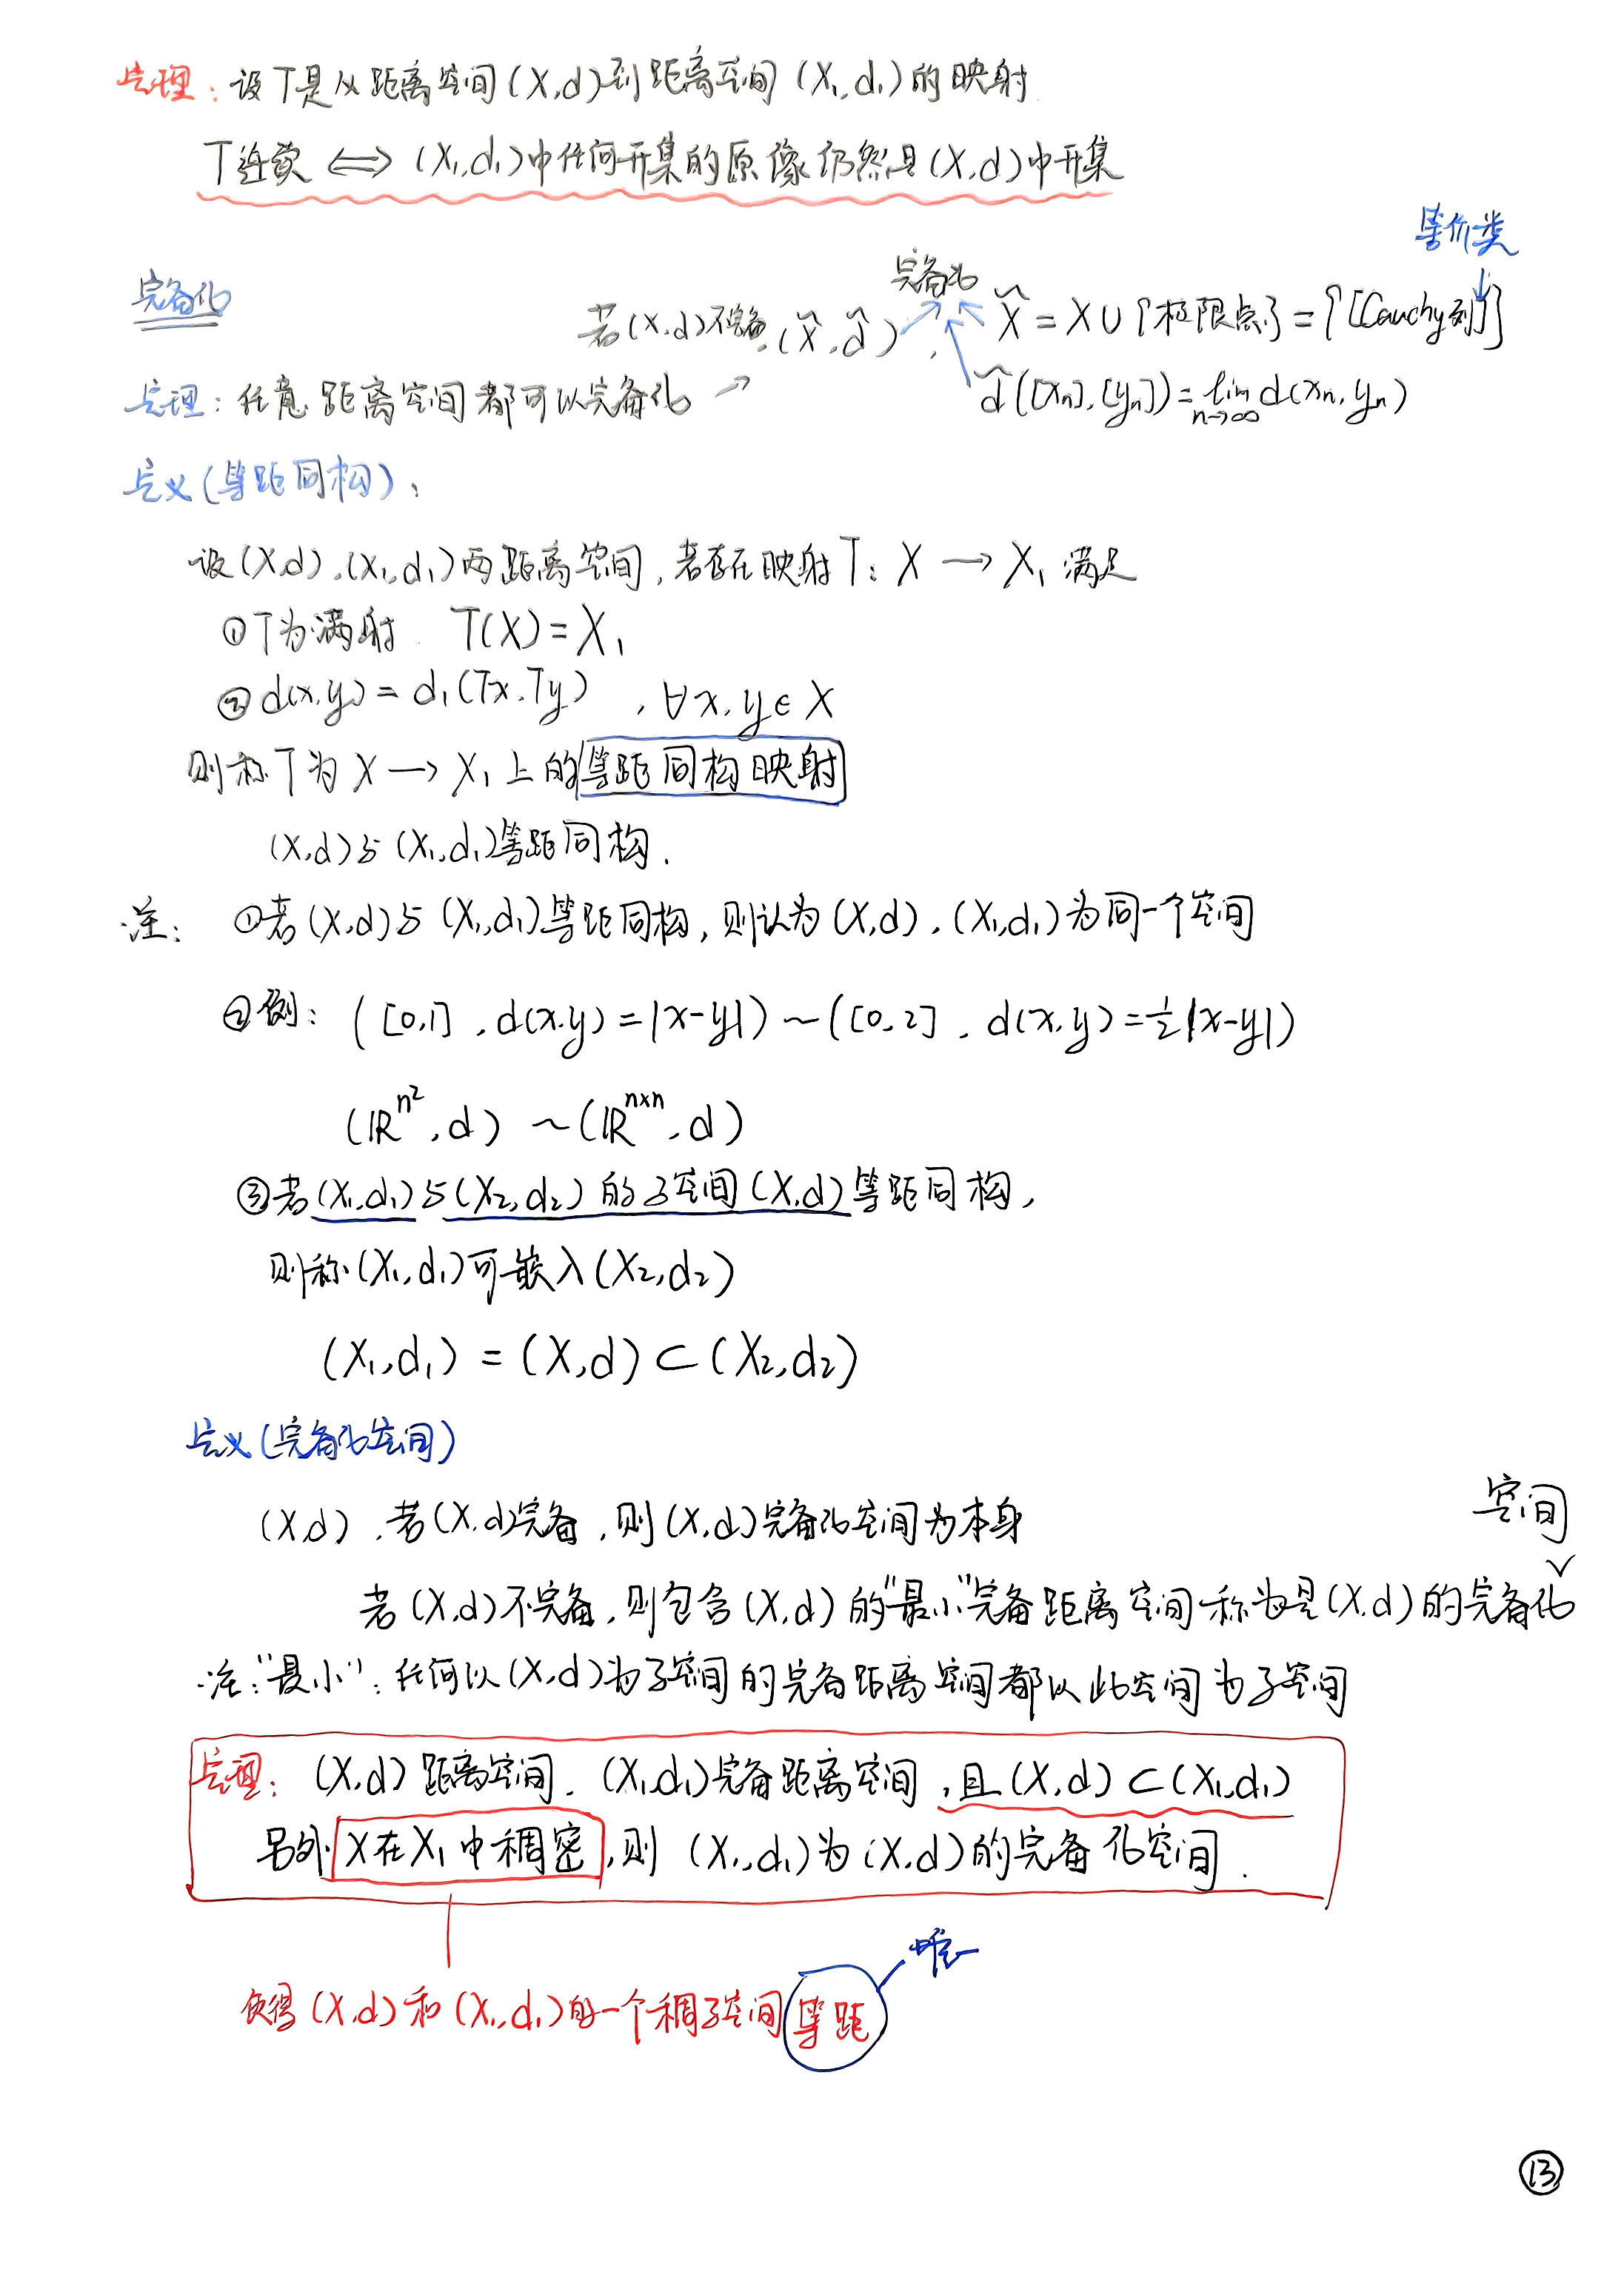 定理：设T是从距离空间(X,d)到距离空间(X₁,d₁)的映射
T连续 ⟺ (X₁,d₁)中任何开集的原像仍然是(X,d)中开集
等价类
完备化
完备化
若(X,d)不完备,(X̂,d̂), X̂ = X∪{极限点} = {[Cauchy列]}
d̂([xₙ],[yₙ]) = lim_{n→∞} d(xₙ,yₙ)
定理：任意距离空间都可以完备化 →
定义(等距同构)：
设(X,d),(X₁,d₁)两距离空间,若存在映射T: X → X₁ 满足
①T为满射. T(X)=X₁
②d(x,y)=d₁(Tx,Ty) , ∀x,y∈X
则称T为X→X₁上的等距同构映射
(X,d)与(X₁,d₁)等距同构.
注: ①若(X,d)与(X₁,d₁)等距同构,则认为(X,d),(X₁,d₁)为同一个空间
②例: ([0,1],d(x,y)=|x-y|) ~ ([0,2],d(x,y)=½|x-y|)
(ℝ^{n²},d) ~ (ℝ^{n×n},d)
③若(X₁,d₁)与(X₂,d₂)的子空间(X,d)等距同构,
则称(X₁,d₁)可嵌入(X₂,d₂)
(X₁,d₁) = (X,d) ⊂ (X₂,d₂)
定义(完备化空间)
(X,d),若(X,d)完备,则(X,d)完备化空间为本身
空间
若(X,d)不完备,则包含(X,d)的"最小"完备距离空间称为是(X,d)的完备化
注:"最小":任何以(X,d)为子空间的完备距离空间都以此空间为子空间
定理: (X,d)距离空间. (X₁,d₁)完备距离空间,且(X,d)⊂(X₁,d₁)
另外X在X₁中稠密,则 (X₁,d₁)为(X,d)的完备化空间.
唯一
使得(X,d)和(X₁,d₁)的一个稠子空间等距
⑬